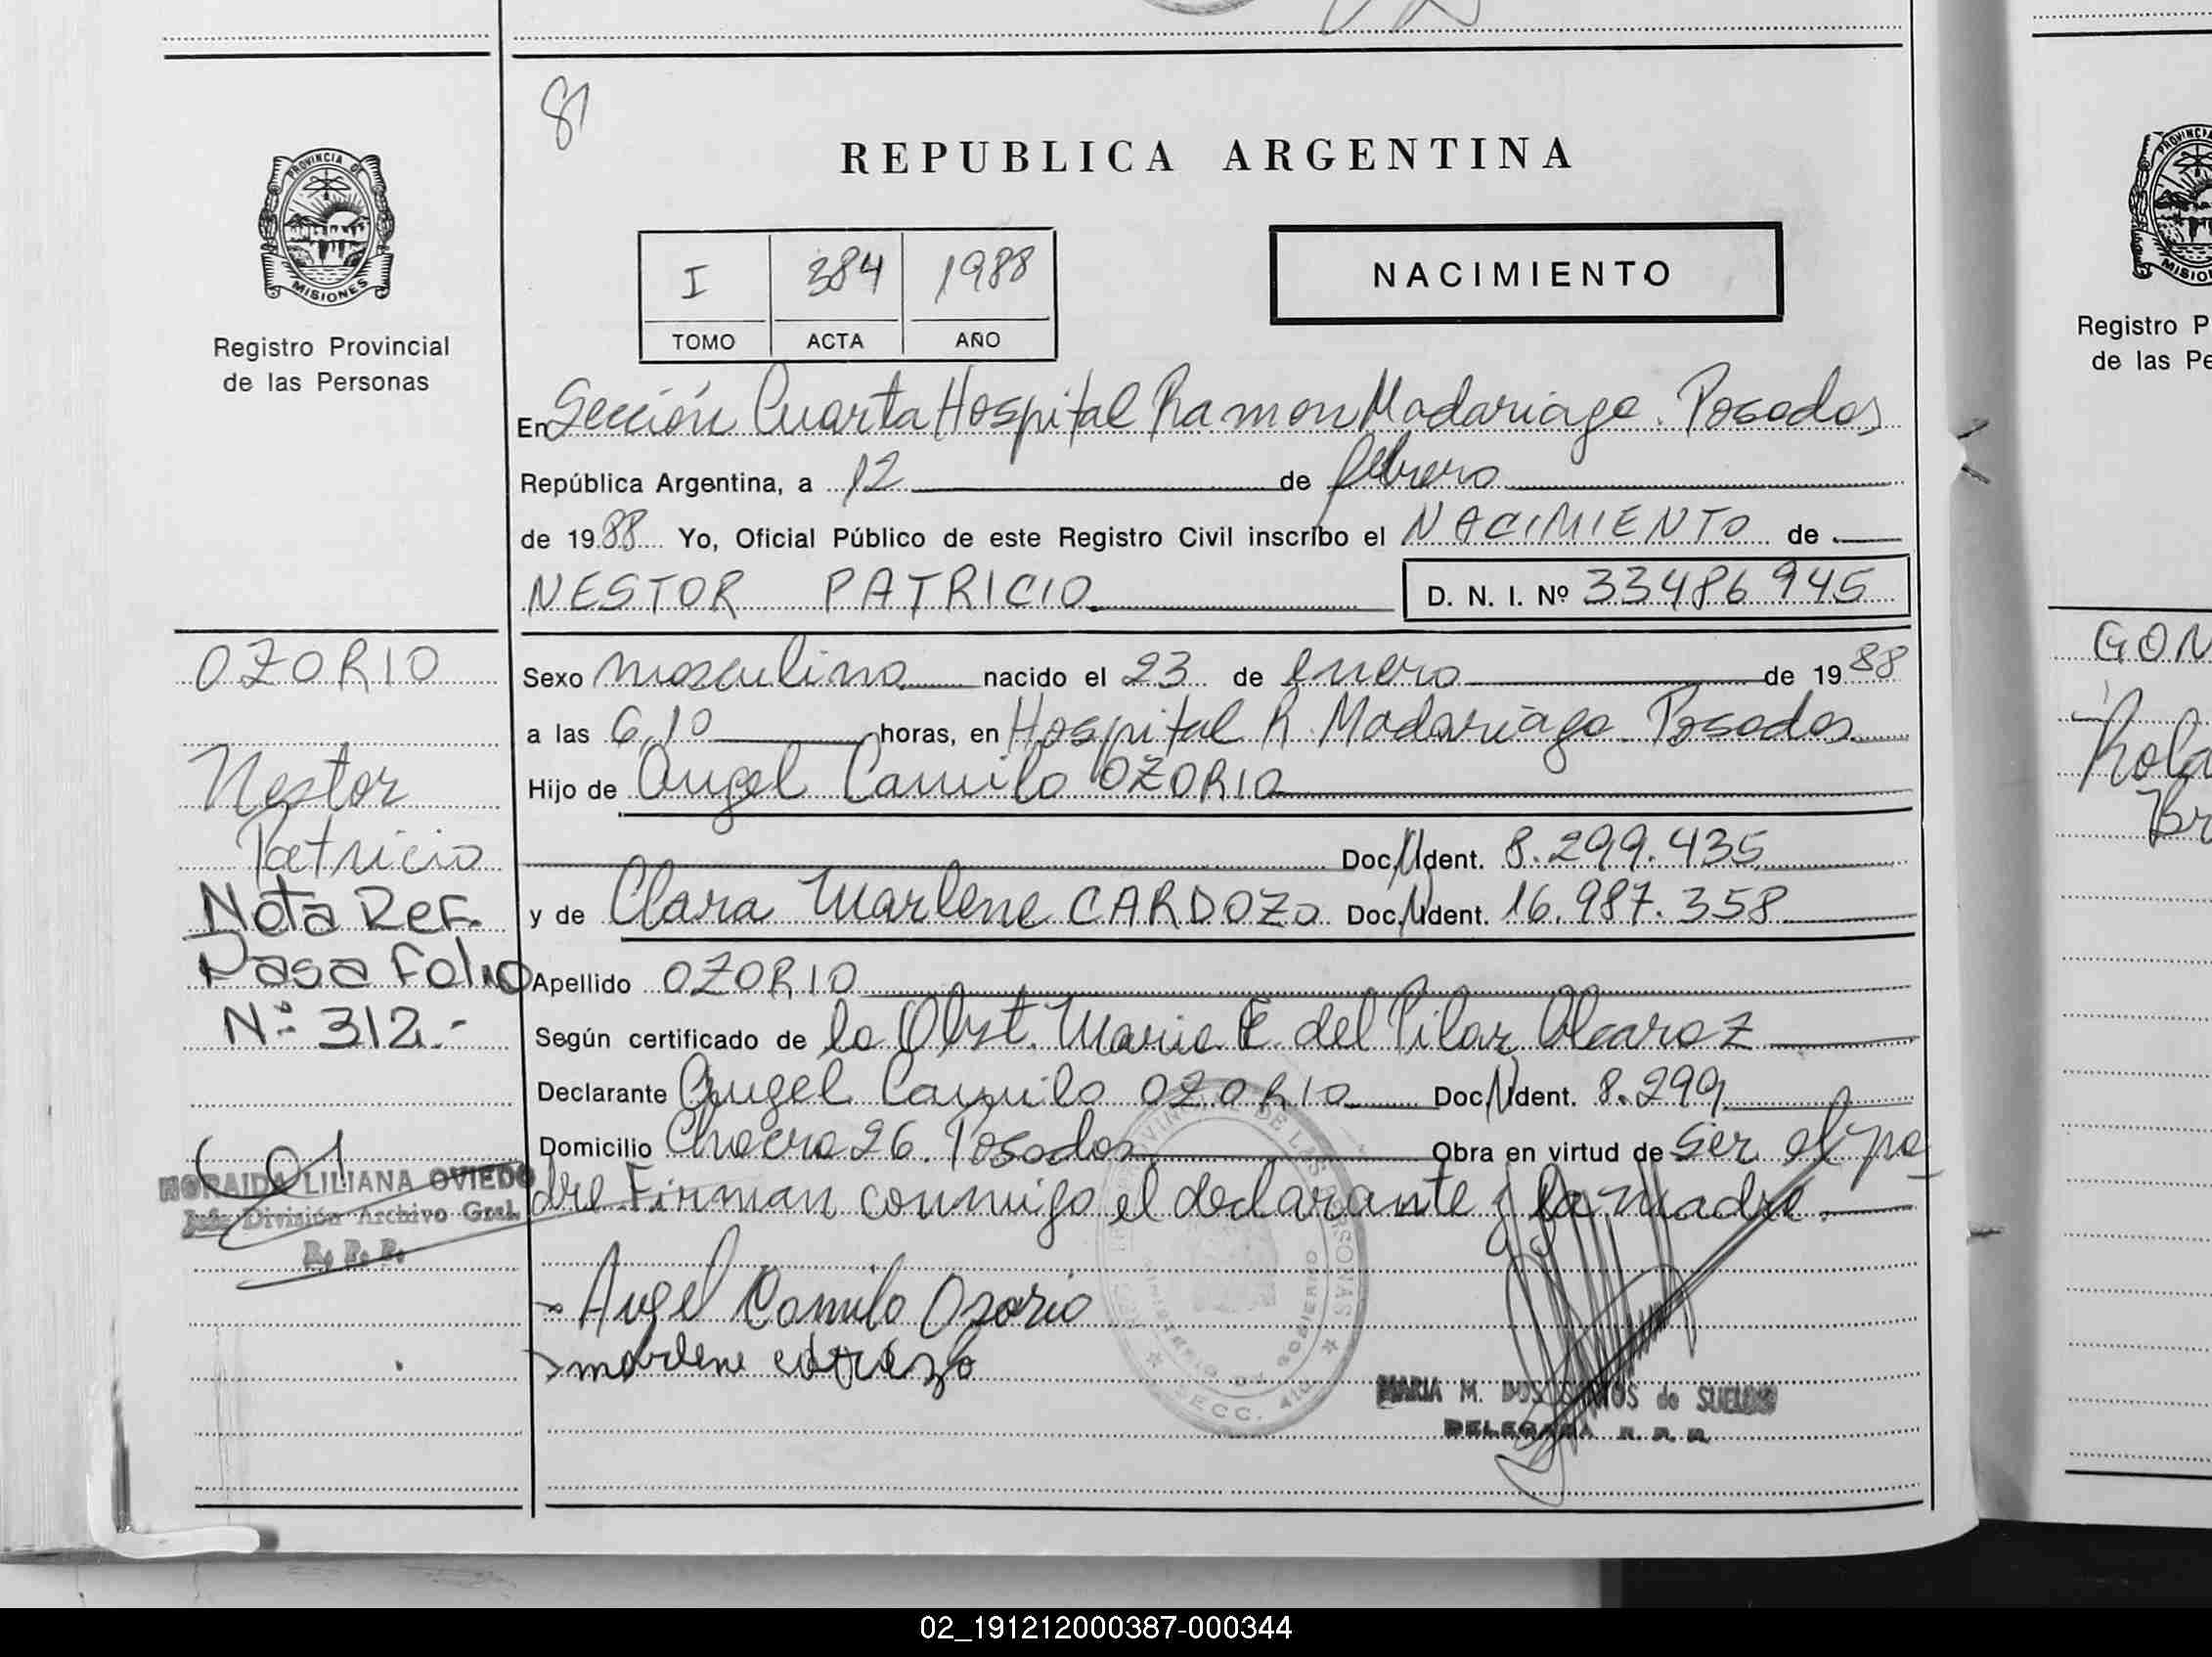 81
REPUBLICA ARGENTINA
PROVINCIA DE
MISIONES
Registro Provincial
de las Personas
I 384 1988
TOMO ACTA AÑO
NACIMIENTO
En Sección Cuarta Hospital Ramon Madariaga. Posadas
República Argentina, a 12 de febrero
de 1988 Yo, Oficial Público de este Registro Civil inscribo el NACIMIENTO de
NESTOR PATRICIO D. N. I. Nº 33486945
Sexo masculino nacido el 23 de enero de 1988
a las 6,10 horas, en Hospital R. Madariaga. Posadas
Hijo de Angel Camilo OZORIO
Doc. Ident. 8.299.435
y de Clara Marlene CARDOZO Doc. Ident. 16.987.358
Apellido OZORIO
Según certificado de la Obst. Maria E. del Pilar Alcaraz
Declarante Angel Camilo OZORIO Doc. Ident. 8.299
Domicilio Chacra 26. Posadas Obra en virtud de ser el pa
dre Firman conmigo el declarante y la madre.
Angel Camilo Osorio
marlene
MARIA M. DOS SANTOS de
DELEGADA R. P. P.
OZORIO
Nestor
Patricio
Nota Ref.
Pasa folio
Nº 312.-
MORAIDA LILIANA OVIEDO
Jefe División Archivo Gral.
R. P. P.
DE LAS PERSONAS
MINISTERIO DE GOBIERNO
SECC. 4ta
PROVINCIA
MISIO
Registro P
de las Pe
GON
Rola
Br
02_191212000387-000344